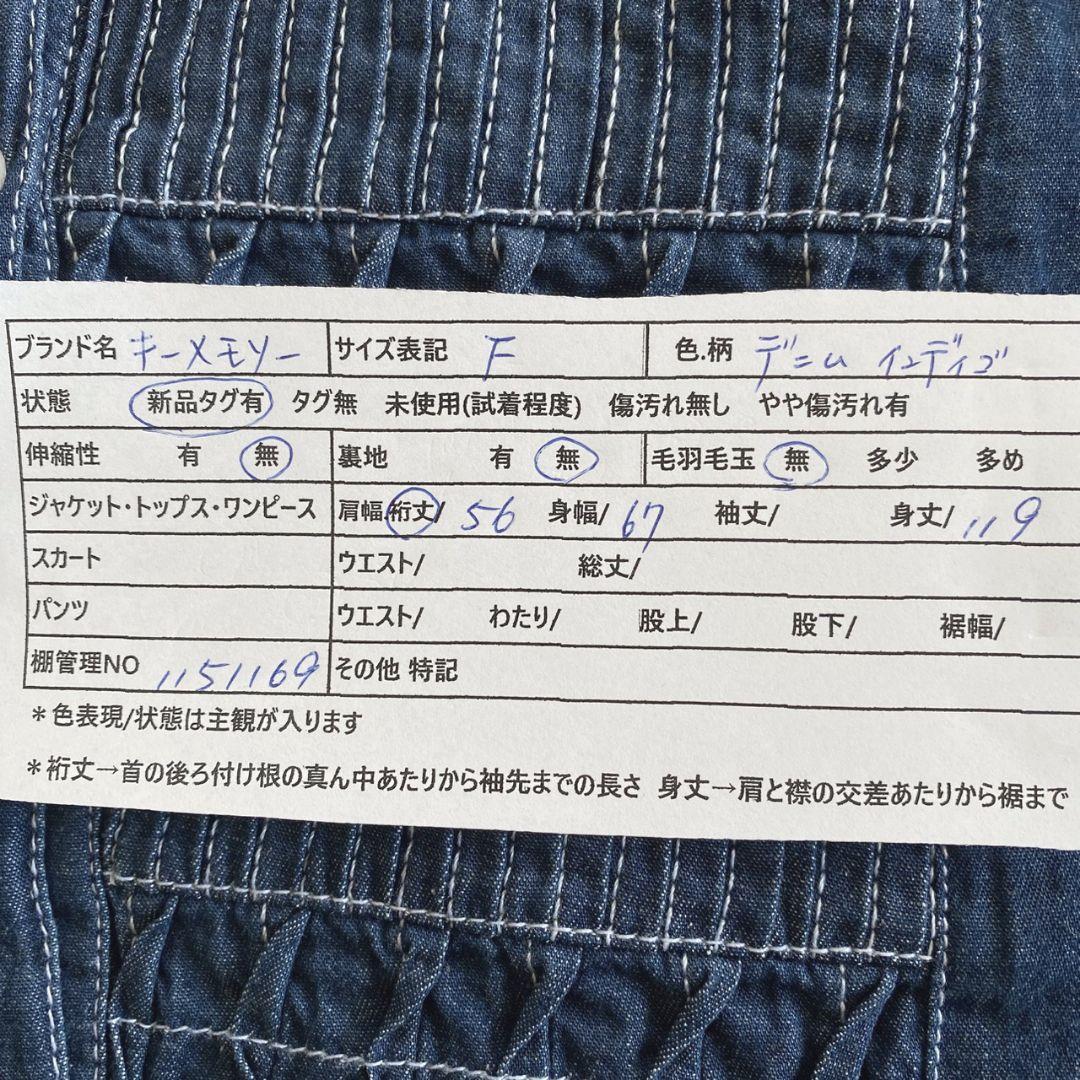 ブランド名 キーメモリー サイズ表記 F 色.柄 デニム インディゴ
状態 新品タグ有 タグ無 未使用(試着程度) 傷汚れ無し やや傷汚れ有
伸縮性 有 無 裏地 有 無 毛羽毛玉 無 多少 多め
ジャケット・トップス・ワンピース 肩幅.裄丈/ 56 身幅/ 67 袖丈/ 身丈/ 119
スカート ウエスト/ 総丈/
パンツ ウエスト/ わたり/ 股上/ 股下/ 裾幅/
棚管理NO 1151169 その他 特記
＊色表現/状態は主観が入ります
＊裄丈→首の後ろ付け根の真ん中あたりから袖先までの長さ 身丈→肩と襟の交差あたりから裾まで